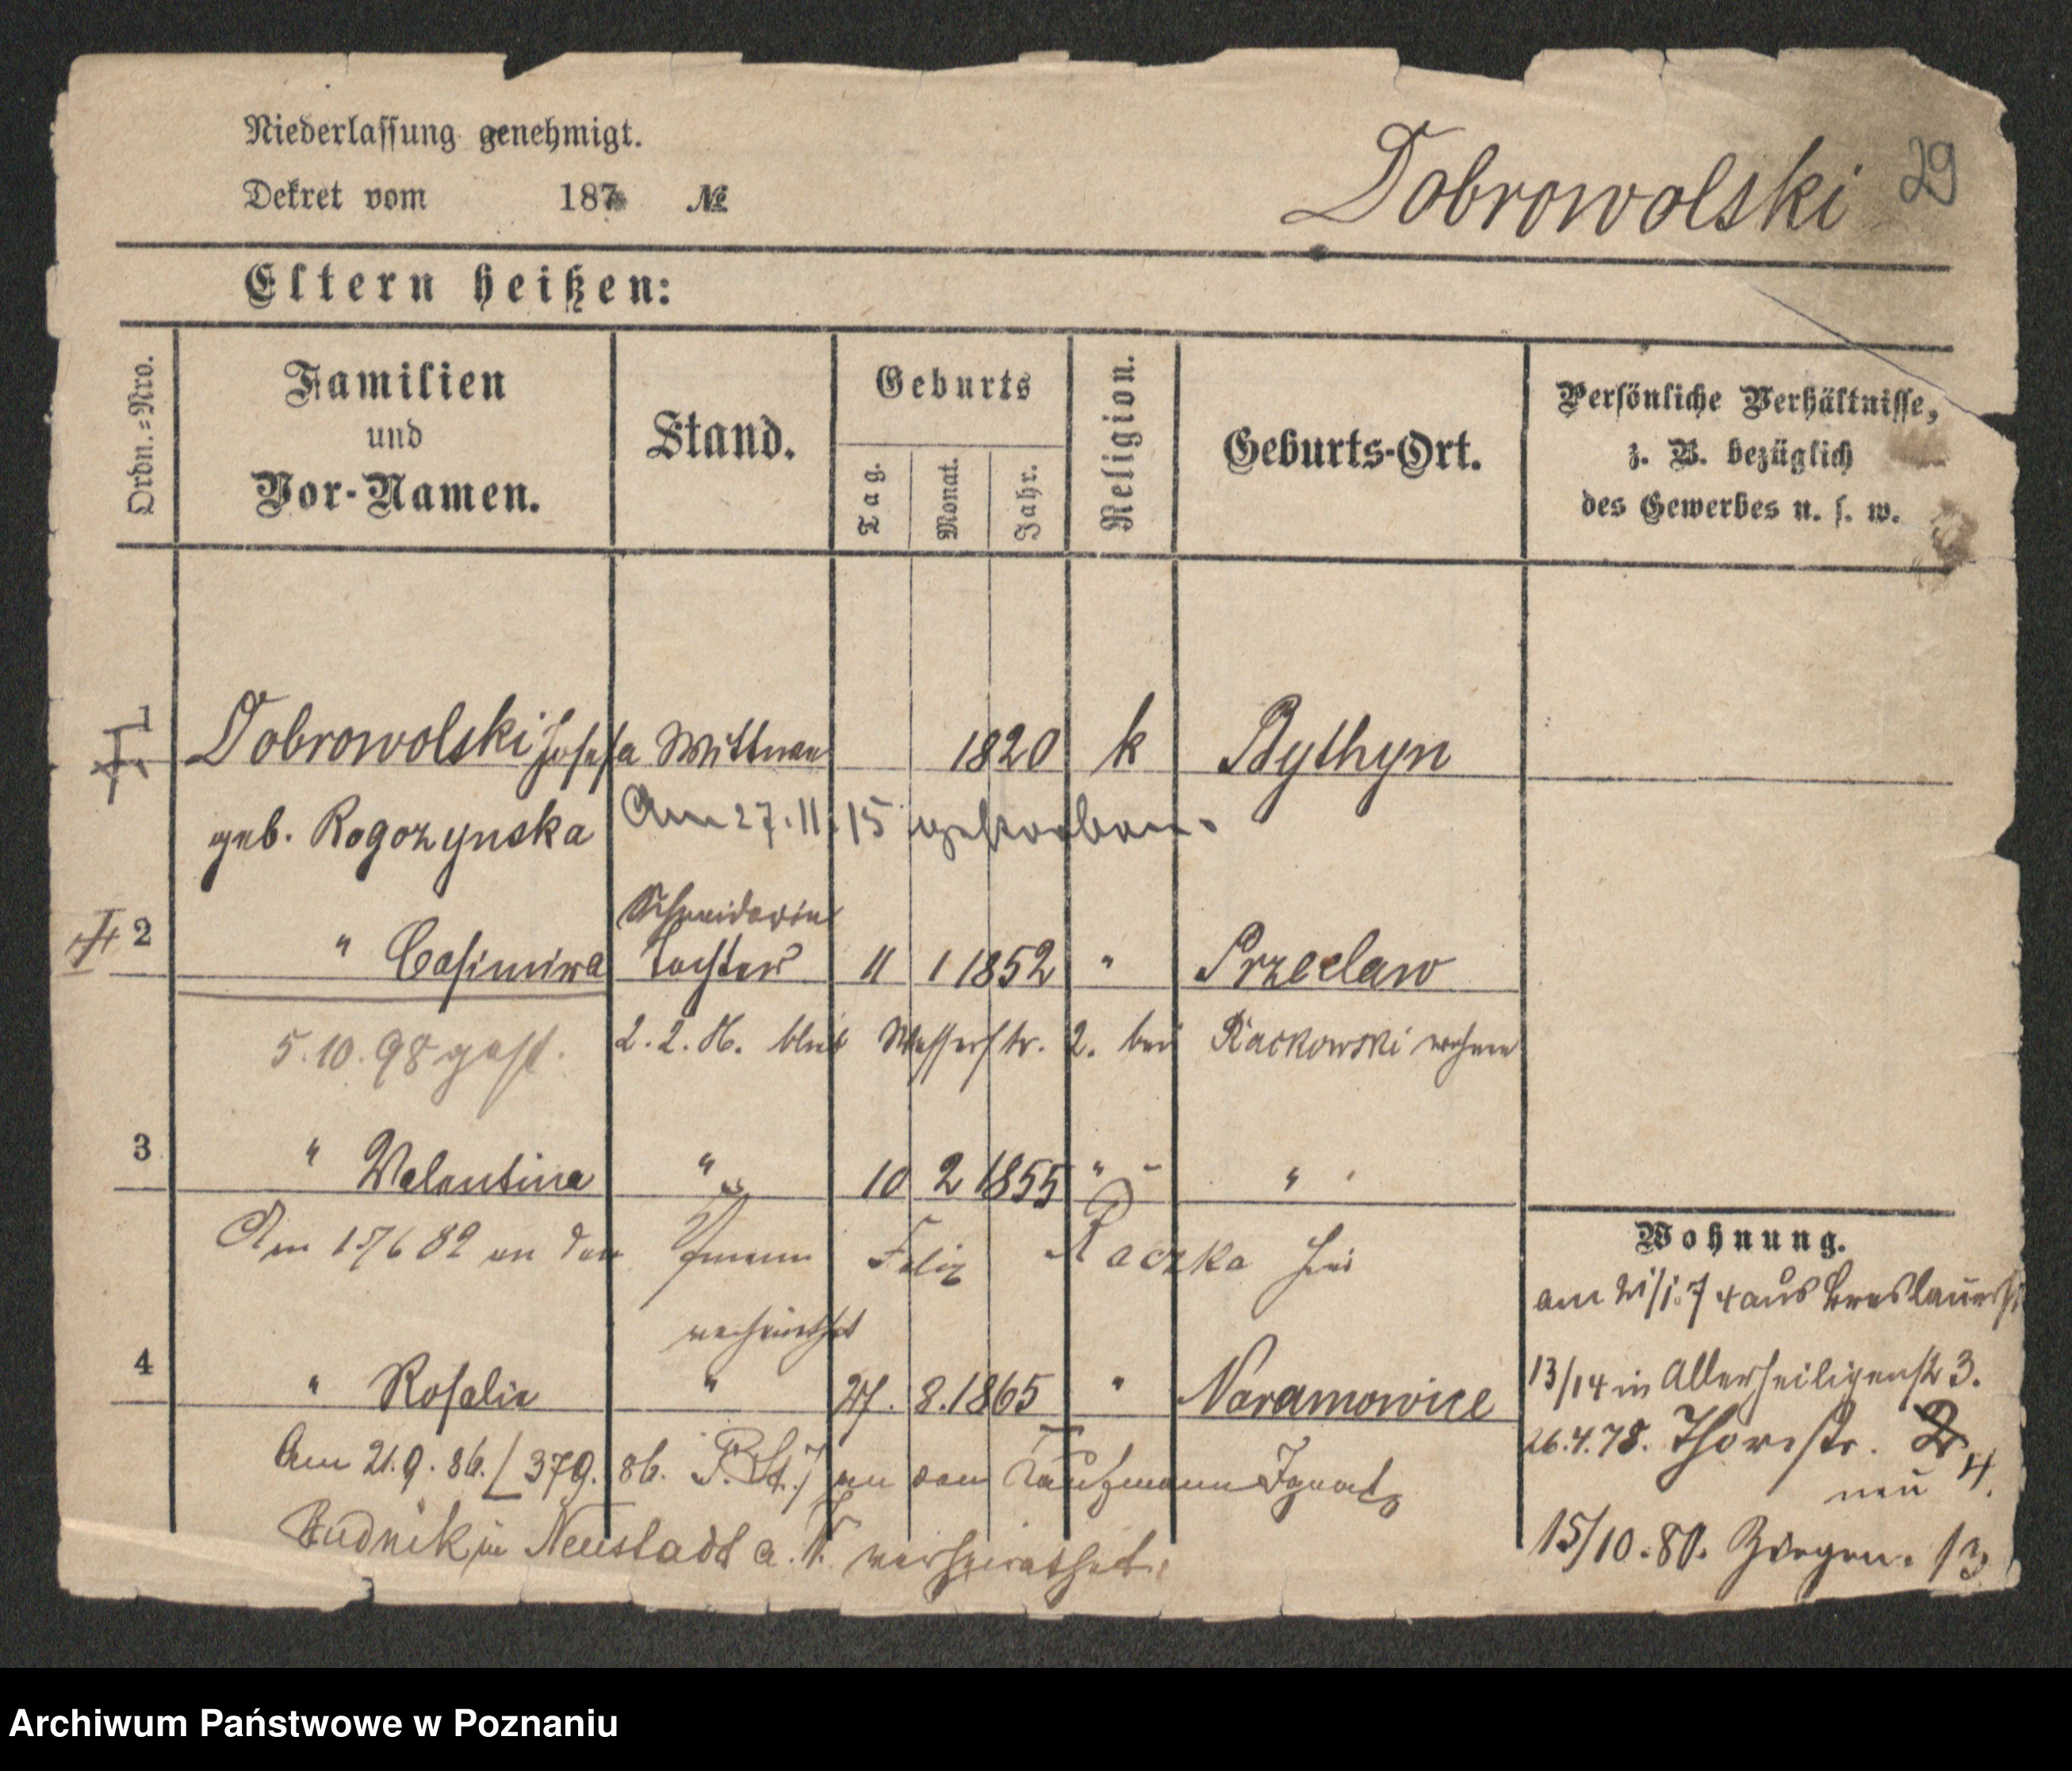 Niederlassung genehmigt.
Dekret vom 187 №
Dobrowolski 29
Eltern heißen:
Ordn.=Nro.
Familien
und
Vor-Namen.
Stand.
Geburts
Tag.
Monat.
Jahr.
Religion.
Geburts-Ort.
Persönliche Verhältnisse,
z. B. bezüglich
des Gewerbes u. s. w.
1 Dobrowolski Josefa Wittwe 1820 k Bythyn
geb. Rogozynska Am 27.11.15 gestorben.
Schneiderin
2 " Casimira Tochter 11 1 1852 " Przeclaw
5.10.98 gest. 2.2.86. bleibt Wasserstr. 2. bei Rackowski wohnen
3 " Valentina " 10 2 1855 " "
Am 15/6 82 an den Felix Raczka hier
verheirathet
4 " Rosalie " 27. 8. 1865 " Naramowice
Am 21.9.86. [379. 86. P. St.] an den Kaufmann Ignatz
Budnik in Neustadt a. W. verheirathet.
Wohnung.
am 21/1.74 aus Breslauerst
13/14 in Allerheiligenstr 3.
26.4.78. Thorstr. 2
neu 4.
15/10.80. Ziegen. 13
Archiwum Państwowe w Poznaniu